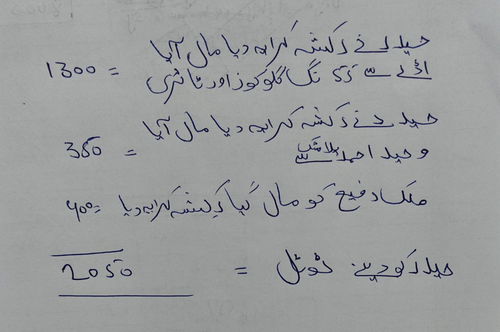 حیدر نے رکشہ کرایہ دیا مال آیا
اڈے سے 55 نگ گلوکوز اور ٹاٹری = 1300
حیدر نے رکشہ کرایہ دیا مال آیا
وحید احمد پلاسٹک سے = 350
ملک رفیع کو مال گیا رکشہ کرایہ دیا 400=
حیدر کو دینے ٹوٹل = 2050